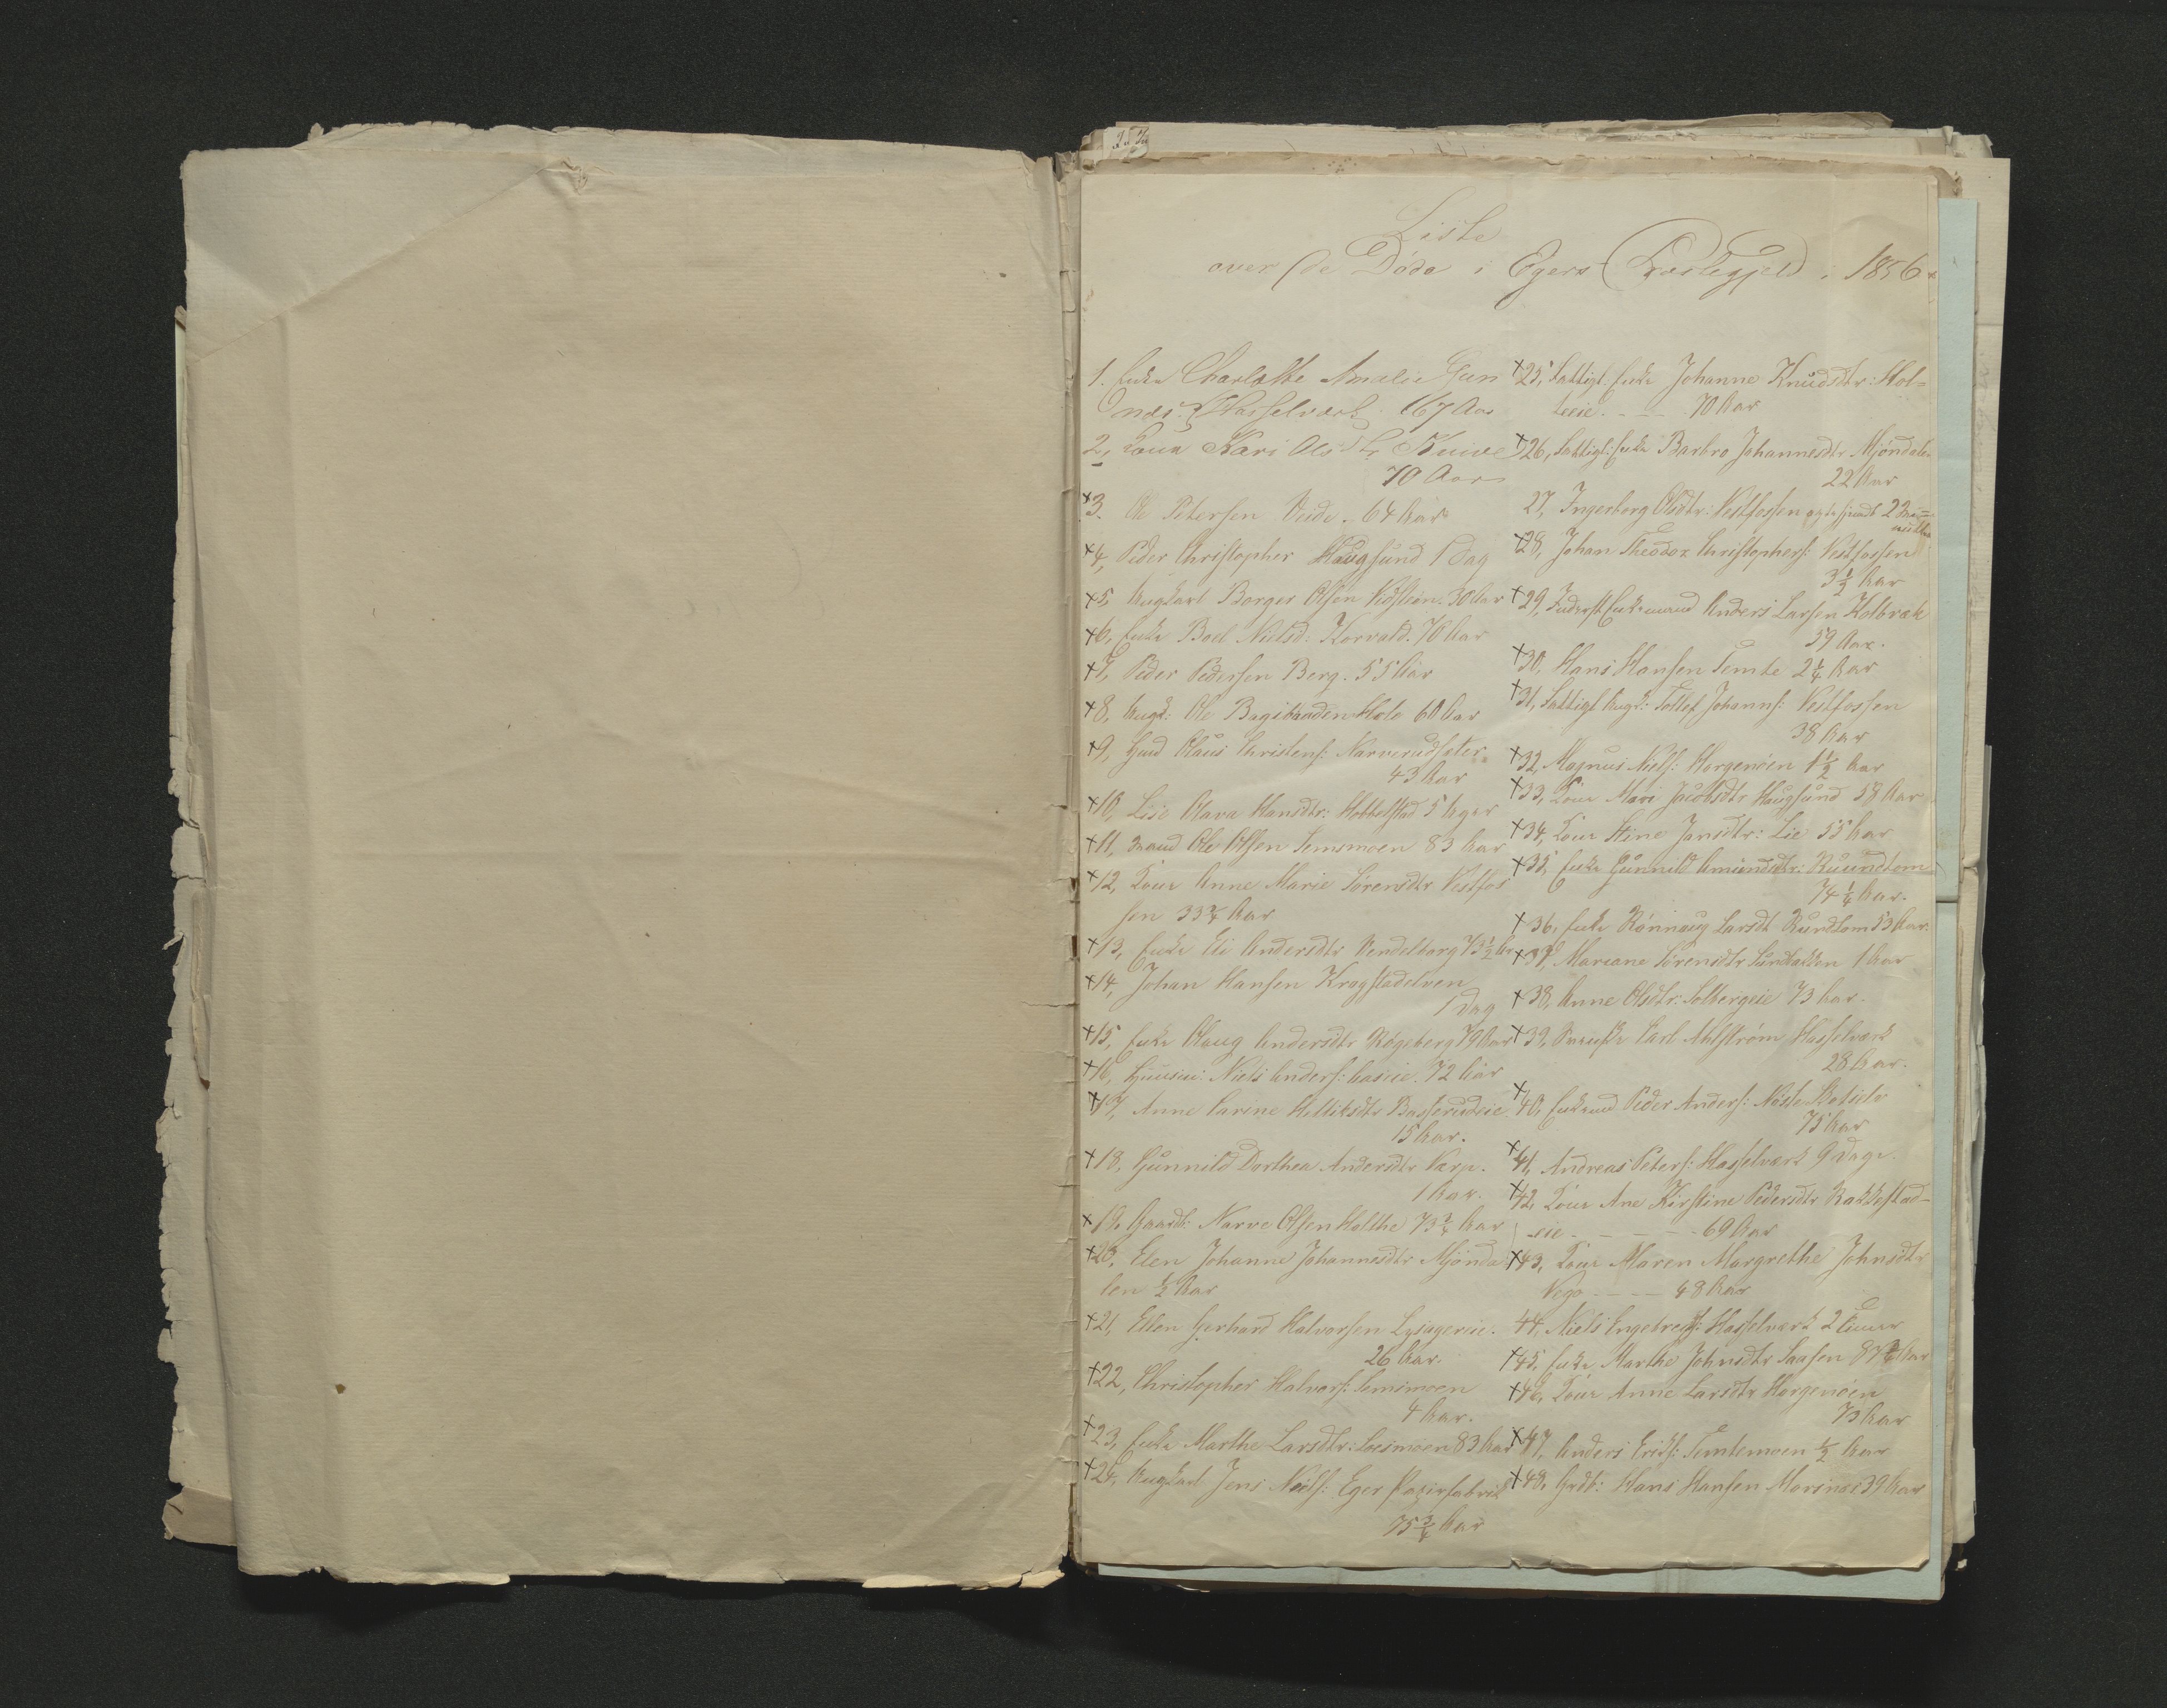 Liste
over de Døde i Egers Præstegjeld i 1856.
1. Enke Charlotte Amalie
Hasselværk 67 Aar
2, Kone Kari Olsdtr
70 Aar
+3. Ole Petersen Veide. 64 Aar
+4, Peder Christopher Haugsund 1 Dag
+5, Ungkarl Borger Olsen 30 Aar
+6, Enke Boel Nielsd: Korvald. 70 Aar
+7, Peder Pedersen Berg. 55 Aar
+8, Ungk: Ole 60 Aar
+9, Olaus Christens:
43 Aar
+10, Lise Olava Hansdtr: Hobbelstad 5 Uger
+11, Mand Ole Olsen Semsmoen 83 Aar
+12, Kone Anne Marie Sørensdtr Vestfos
sen 33 3/4 Aar
+13, Enke Eli Andersdtr Vendelborg 73 1/2 Aar
+14, Johan Hansen Kragstadelven
1 Dag
+15, Enke Olaug Andersdtr Røgeberg 79 Aar
+16, Niels Anders: Aaseie. 72 Aar
+17, Anne Carine Basserudeie
15 Aar.
+18, Gunnild Dorthea Andersdtr Varp.
1 Aar.
+19, Gaardb: Narve Olsen Holthe 73 3/4 Aar
+20, Elen Johanne Johannesdtr Mjønda
len 1/2 Aar
+21, Ellen Gerhard Halvorsen
26 Aar.
+22, Christopher Halvors: Semsmoen
4 Aar.
+23, Enke Marthe Larsdtr: Loesmoen 83 Aar
+24, Ungkarl Jens Niels: Eger Papirfabrik
75 3/4 Aar
+25, Fattigl. Enke Johanne Knudsdtr: Hol=
teeie. - - - 70 Aar
+26, Fattigl: Enke Barbro Johannesdtr Mjøndalen
22 Aar
27, Ingerborg Olsdtr: Vestfossen 2 Mi=
nutter
+28, Johan Theodor Christophers: Vestfossen
3 1/2 Aar
+29, Inderst Enkemand Anders Larsen Holbræk
59 Aar.
+30, Hans Hansen Temte 2 1/4 Aar
+31, Fattigl Ungk: Tollef Johanns: Vestfossen
38 Aar
+32, Magnus Niels: Horgenøen 1 1/2 Aar
+33, Kone Mari Jacobsdtr Haugsund 58 Aar
+34, Kone Stine Jansdtr: Lie 55 Aar
+35, Enke Gunnild Amundsdtr: Ruundtom
74 1/4 Aar.
+36, Enke Rønnaug Larsdt Rundtom 53 Aar.
+37, Mariane Sørensdtr 1 Aar
+38, Anne Olsdtr: Solbergeie 73 Aar.
+39, Carl Ahlstrøm Hasselværk
28 Aar.
+40, Enkemd Peder Anders:
75 Aar
+41, Andreas Peters: Hasselværk 9 Dage.
+42, Kone Ane Kirstine Pedersdtr Rakkestad-
eie - - - - - 69 Aar
+43, Kone Maren Margrethe Johnsdtr
Vego - - - - 48 Aar
44, Niels Engebrets: Hasselværk 2 Timer
+45, Enke Marthe Johnsdtr Aar
+46, Kone Anne Larsdtr Horgenøen
73 Aar
+47, Anders Eriks: Temtemoen 1/2 Aar
+48, Grdb: Hans Hansen 39 Aar